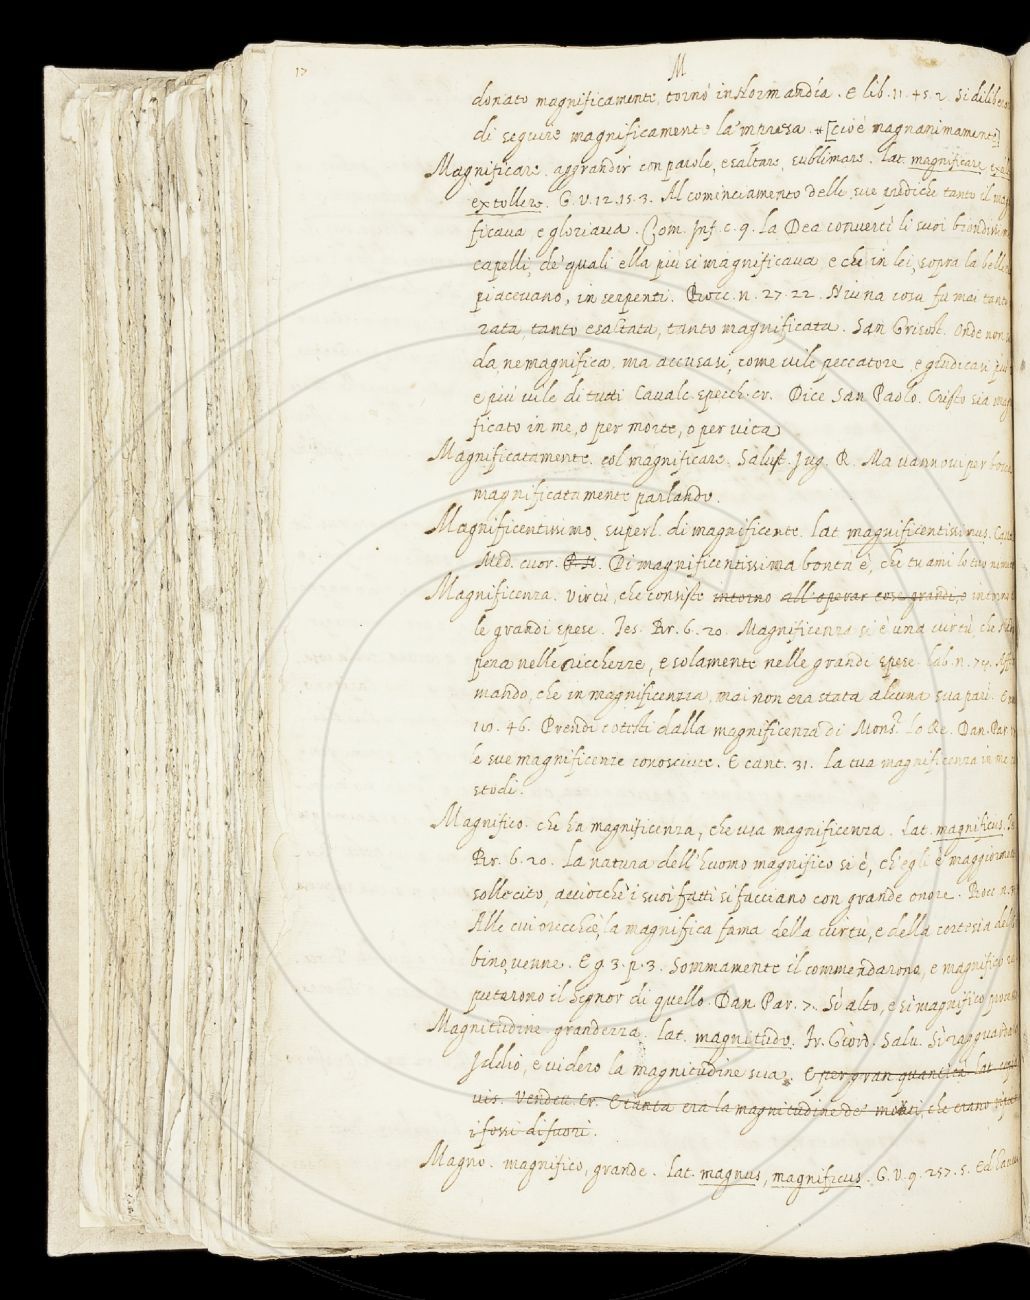 17
M
donato magnificamente, tornò in Normandia. E lib. 11. 45. 2. Si
di seguire magnificamente la 'mpresa. *[cioè magnanimamente]
Magnificare. aggrandir con parole, esaltare, sublimare. Lat. magnificare,
extollere. G. V. 12. 15. 3. Al cominciamento delle sue prediche tanto il
ficava e gloriava. Com. Inf. c. 9. La Dea convertì li suoi
capelli, de' quali ella più si magnificava e che in lei, sopra la
piacevano, in serpenti. Bocc. n. 27. 22. Niuna cosa fu mai
rata, tanto esaltata, tanto magnificata. San Grisost. Onde non
da, ne magnifica, ma accusasi, come vile peccatore, e giudicasi
e più vile di tutti. Cavalc. specch. cr. Dice San Paolo. Cristo sia
ficato in me, o per morte, o per vita
Magnificatamente. col magnificare. Salust. Jug. R. Ma vannovi per
magnificatamente parlando.
Magnificentissimo. superl. di magnificente. lat. magnificentissimus.
Med. cuor. Di magnificentissima bontà è, che tu ami lo tuo
Magnificenza. Virtù, che consiste intorno all'operar cose grandi, o
le grandi spese. Tes. Br. 6. 20. Magnificenza si è una virtù, che
pera nelle ricchezze, e solamente nelle grandi spese. Lab. n.
mando, che in magnificenza, mai non era stata alcuna sua pari.
110. 46. Prendi cotesti dalla magnificenza di Mons.r lo Re. Dan. Par.
le sue magnificenze conosciute. E cant. 31. La tua magnificenza in me
stodi.
Magnifico. che ha magnificenza, che usa magnificenza. Lat. magnificus.
Br. 6. 20. La natura dell'huomo magnifico si è, ch'egli è
sollecito, acciocchè i suoi fatti si facciano con grande onore. Bocc. n.
Alle cui orecchie, la magnifica fama della virtù, e della cortesia del
bino, venne. E g. 3. p. 3. Sommamente il commendarono, e magnifico
putarono il Signor di quello. Dan. Par. 7. Sì alto, e sì magnifico
Magnitudine. grandezza. lat. magnitudo. Fr. Giord. Salv. Si
Iddio, e videro la magnitudine sua. E per gran quantità. lat.
vis. Vendet. Cr. E tanta era la magnitudine de' morti, che erano
i fossi di fuori.
Magno. magnifico, grande. lat. magnus, magnificus. G. V. 9. 257. 5. Ed